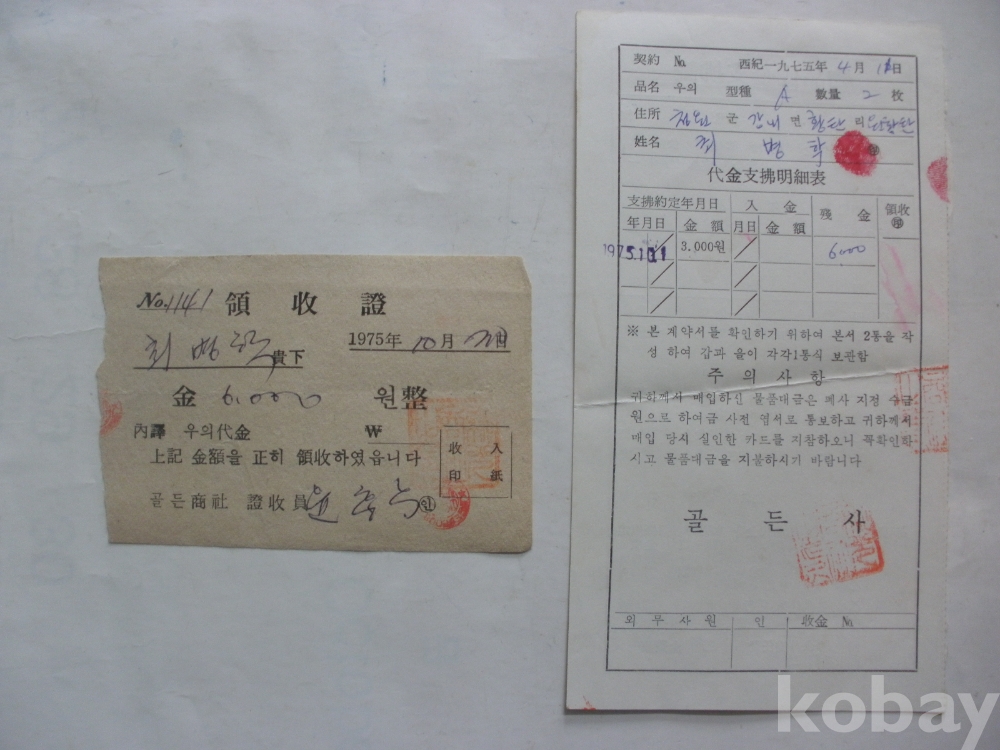 No. 1141 領收證
최병학 貴下
1975年 10月 日
金 6,000 원整
內譯 우의代金 ₩
上記 金額을 正히 領收하였읍니다
收入
印紙
골든商社 證收員 윤 ㊞
契約 №. 西紀一九七五年 4月 日
品名 우의 型種 A 數量 2 枚
住所 군 면 황탄 리
姓名 최 병 학 ㊞
代金支拂明細表
支拂約定年月日 入金 残金 領收㊞
年月日 金額 月日 金額
1975.10.1 3.000원 6000
※ 본 계약서를 확인하기 위하여 본서 2통을 작
성 하여 갑과 을이 각각1통식 보관함
주의사항
귀하께서 매입하신 물품대금은 폐사 지정 수금
원으로 하여금 사전 엽서로 통보하고 귀하께서
매입 당시 실인한 카드를 지참하오니 꼭확인하
시고 물품대금을 지불하시기 바랍니다
골든사
외무사원 인 收金 №.
kobay